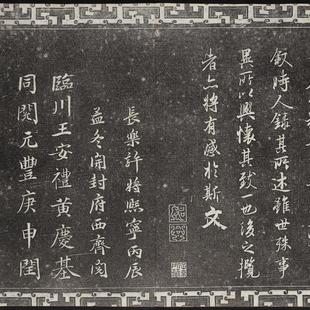 叙時人錄其所述雖世殊事
異所以興懷其致一也後之攬
者亦將有感於斯文
長樂許將熙寧丙辰
孟冬開封府西齊閱
臨川王安禮黃慶基
同閱元豐庚申閏